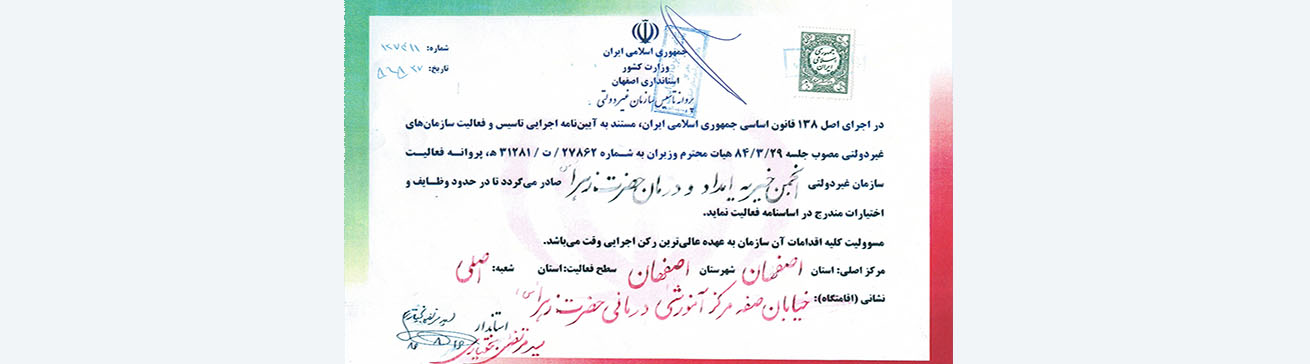 جمهوری اسلامی ایران
وزارت کشور
استانداری اصفهان
پروانه تاسیس سازمان غیردولتی
شماره:
تاریخ:
جمهوری اسلامی ایران
در اجرای اصل ۱۳۸ قانون اساسی جمهوری اسلامی ایران، مستند به آیین‌نامه اجرایی تاسیس و فعالیت سازمان‌های
غیردولتی مصوب جلسه ۸۴/۳/۲۹ هیات محترم وزیران به شماره ۲۷۸۶۲ / ت / ۳۱۲۸۱ ه، پروانه فعالیت
سازمان غیردولتی انجمن خیریه امداد و درمان حضرت زهرا (س) صادر می‌گردد تا در حدود وظایف و
اختیارات مندرج در اساسنامه فعالیت نماید.
مسوولیت کلیه اقدامات آن سازمان به عهده عالی‌ترین رکن اجرایی وقت می‌باشد.
مرکز اصلی: استان اصفهان شهرستان اصفهان سطح فعالیت: استان شعبه: اصلی
نشانی (اقامتگاه): خیابان صفه مرکز آموزشی درمانی حضرت زهرا (س)
استاندار
سید مرتضی بختیاری